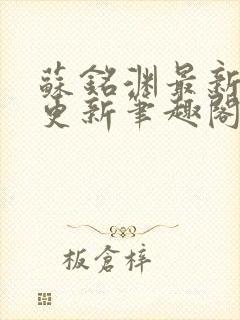 蘇銘淵最新
更新筆趣閣
板倉梓